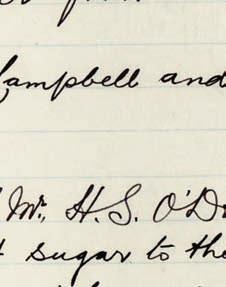 Campbell and
Mr. H. S. O'D
sugar to the